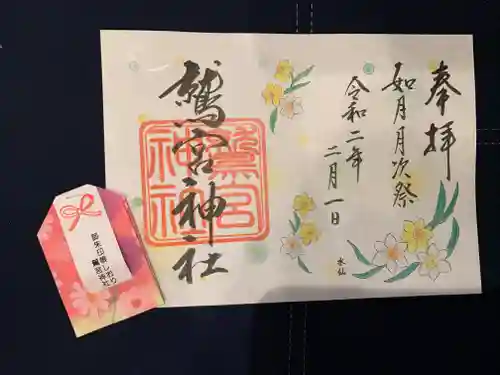 奉拝
如月月次祭
令和二年
二月一日
鷲宮神社
鷲宮
神社
水仙
御朱印帳しおり
鷲宮神社